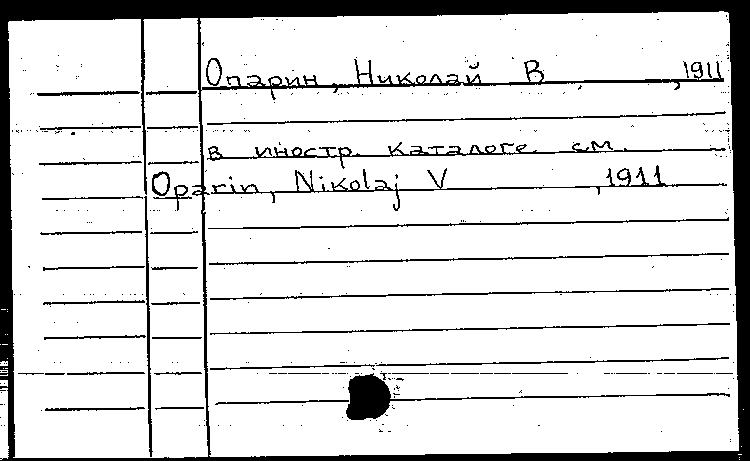 Опарин, Николай В. ,1911
в иностр. каталоге см.
Oparin, Nikolaj V ,1911